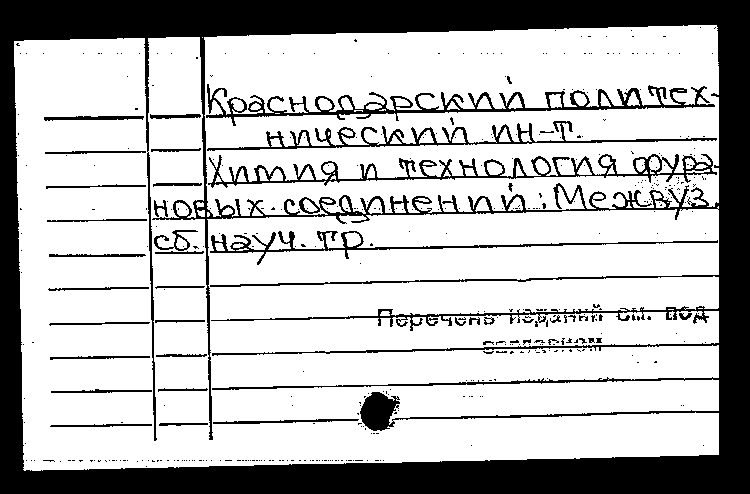 Краснодарский политех-
нический ин-т.
Химия и технология фура-
новых соединений: Межвуз.
сб. науч. тр.
Перечень изданий см. под
заглавием